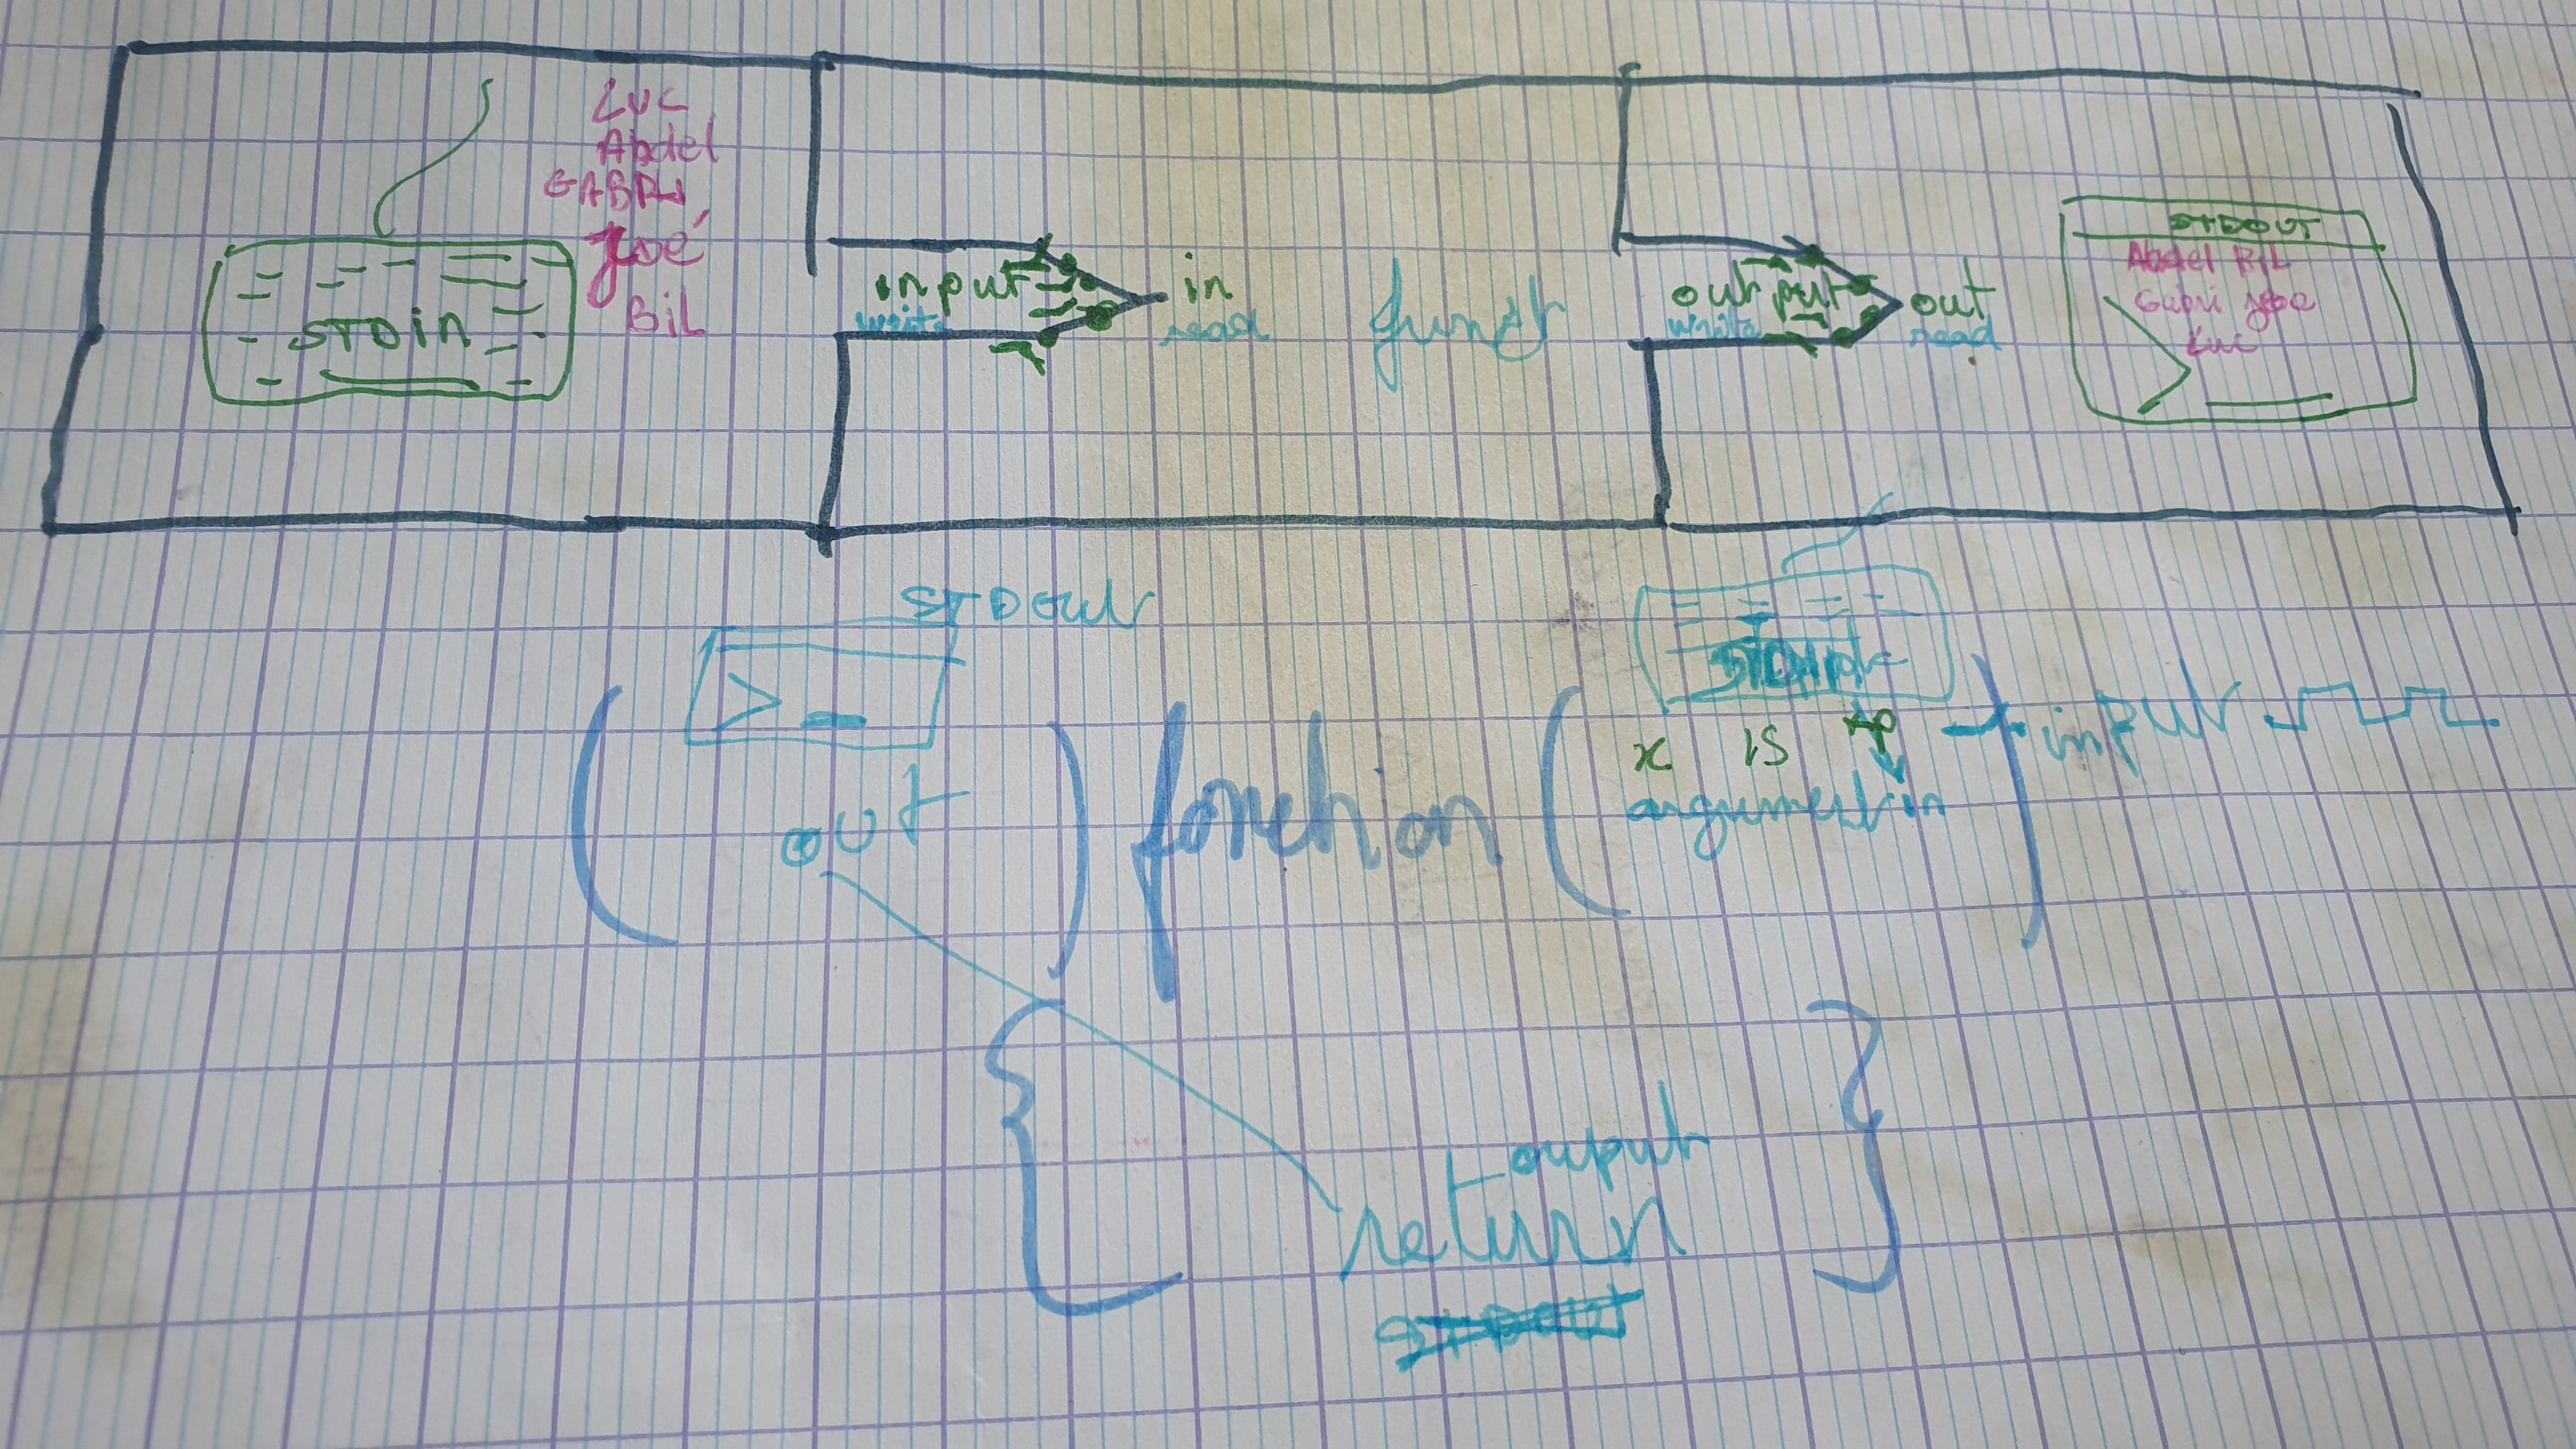 Luc
Abdel
GABRI
Zoé
BiL
STDin
input
write
in
read
funct
output
write
out
read
STDOUT
Abdel BiL
Gabri Zoe
Luc
STDOUT
> _
out
fonction
x is
argument in
input
output
return
STDOUT